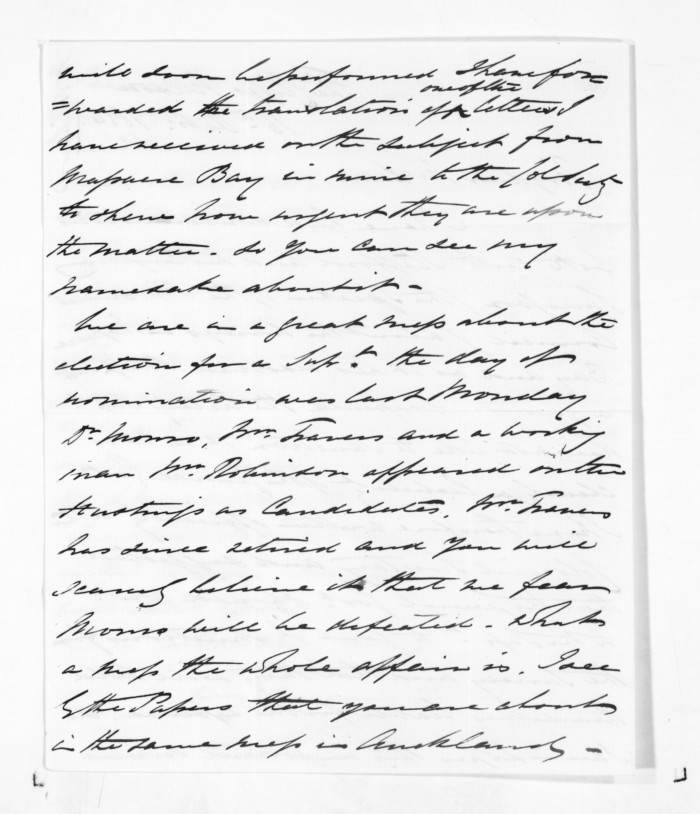 will soon be performed I have for=
=warded the translation of one of the letters I
have received on the subject from
Massacre Bay in mine to the Col Secty
to shew how urgent they are upon
the matter. So you can see my
namesake about it –
We are in a great mess about the
election for a Supt. the day of
nomination was last Monday
Dr. Monro, Mr. Travers and a working
man Mr. Robinson appeared on the
Hustings as Candidates. Mr. Travers
has since retired and you will
scarcely believe it that we fear
Monro will be defeated. What
a mess the whole affair is. I see
by the Papers that you are about
in the same mess in Auckland –